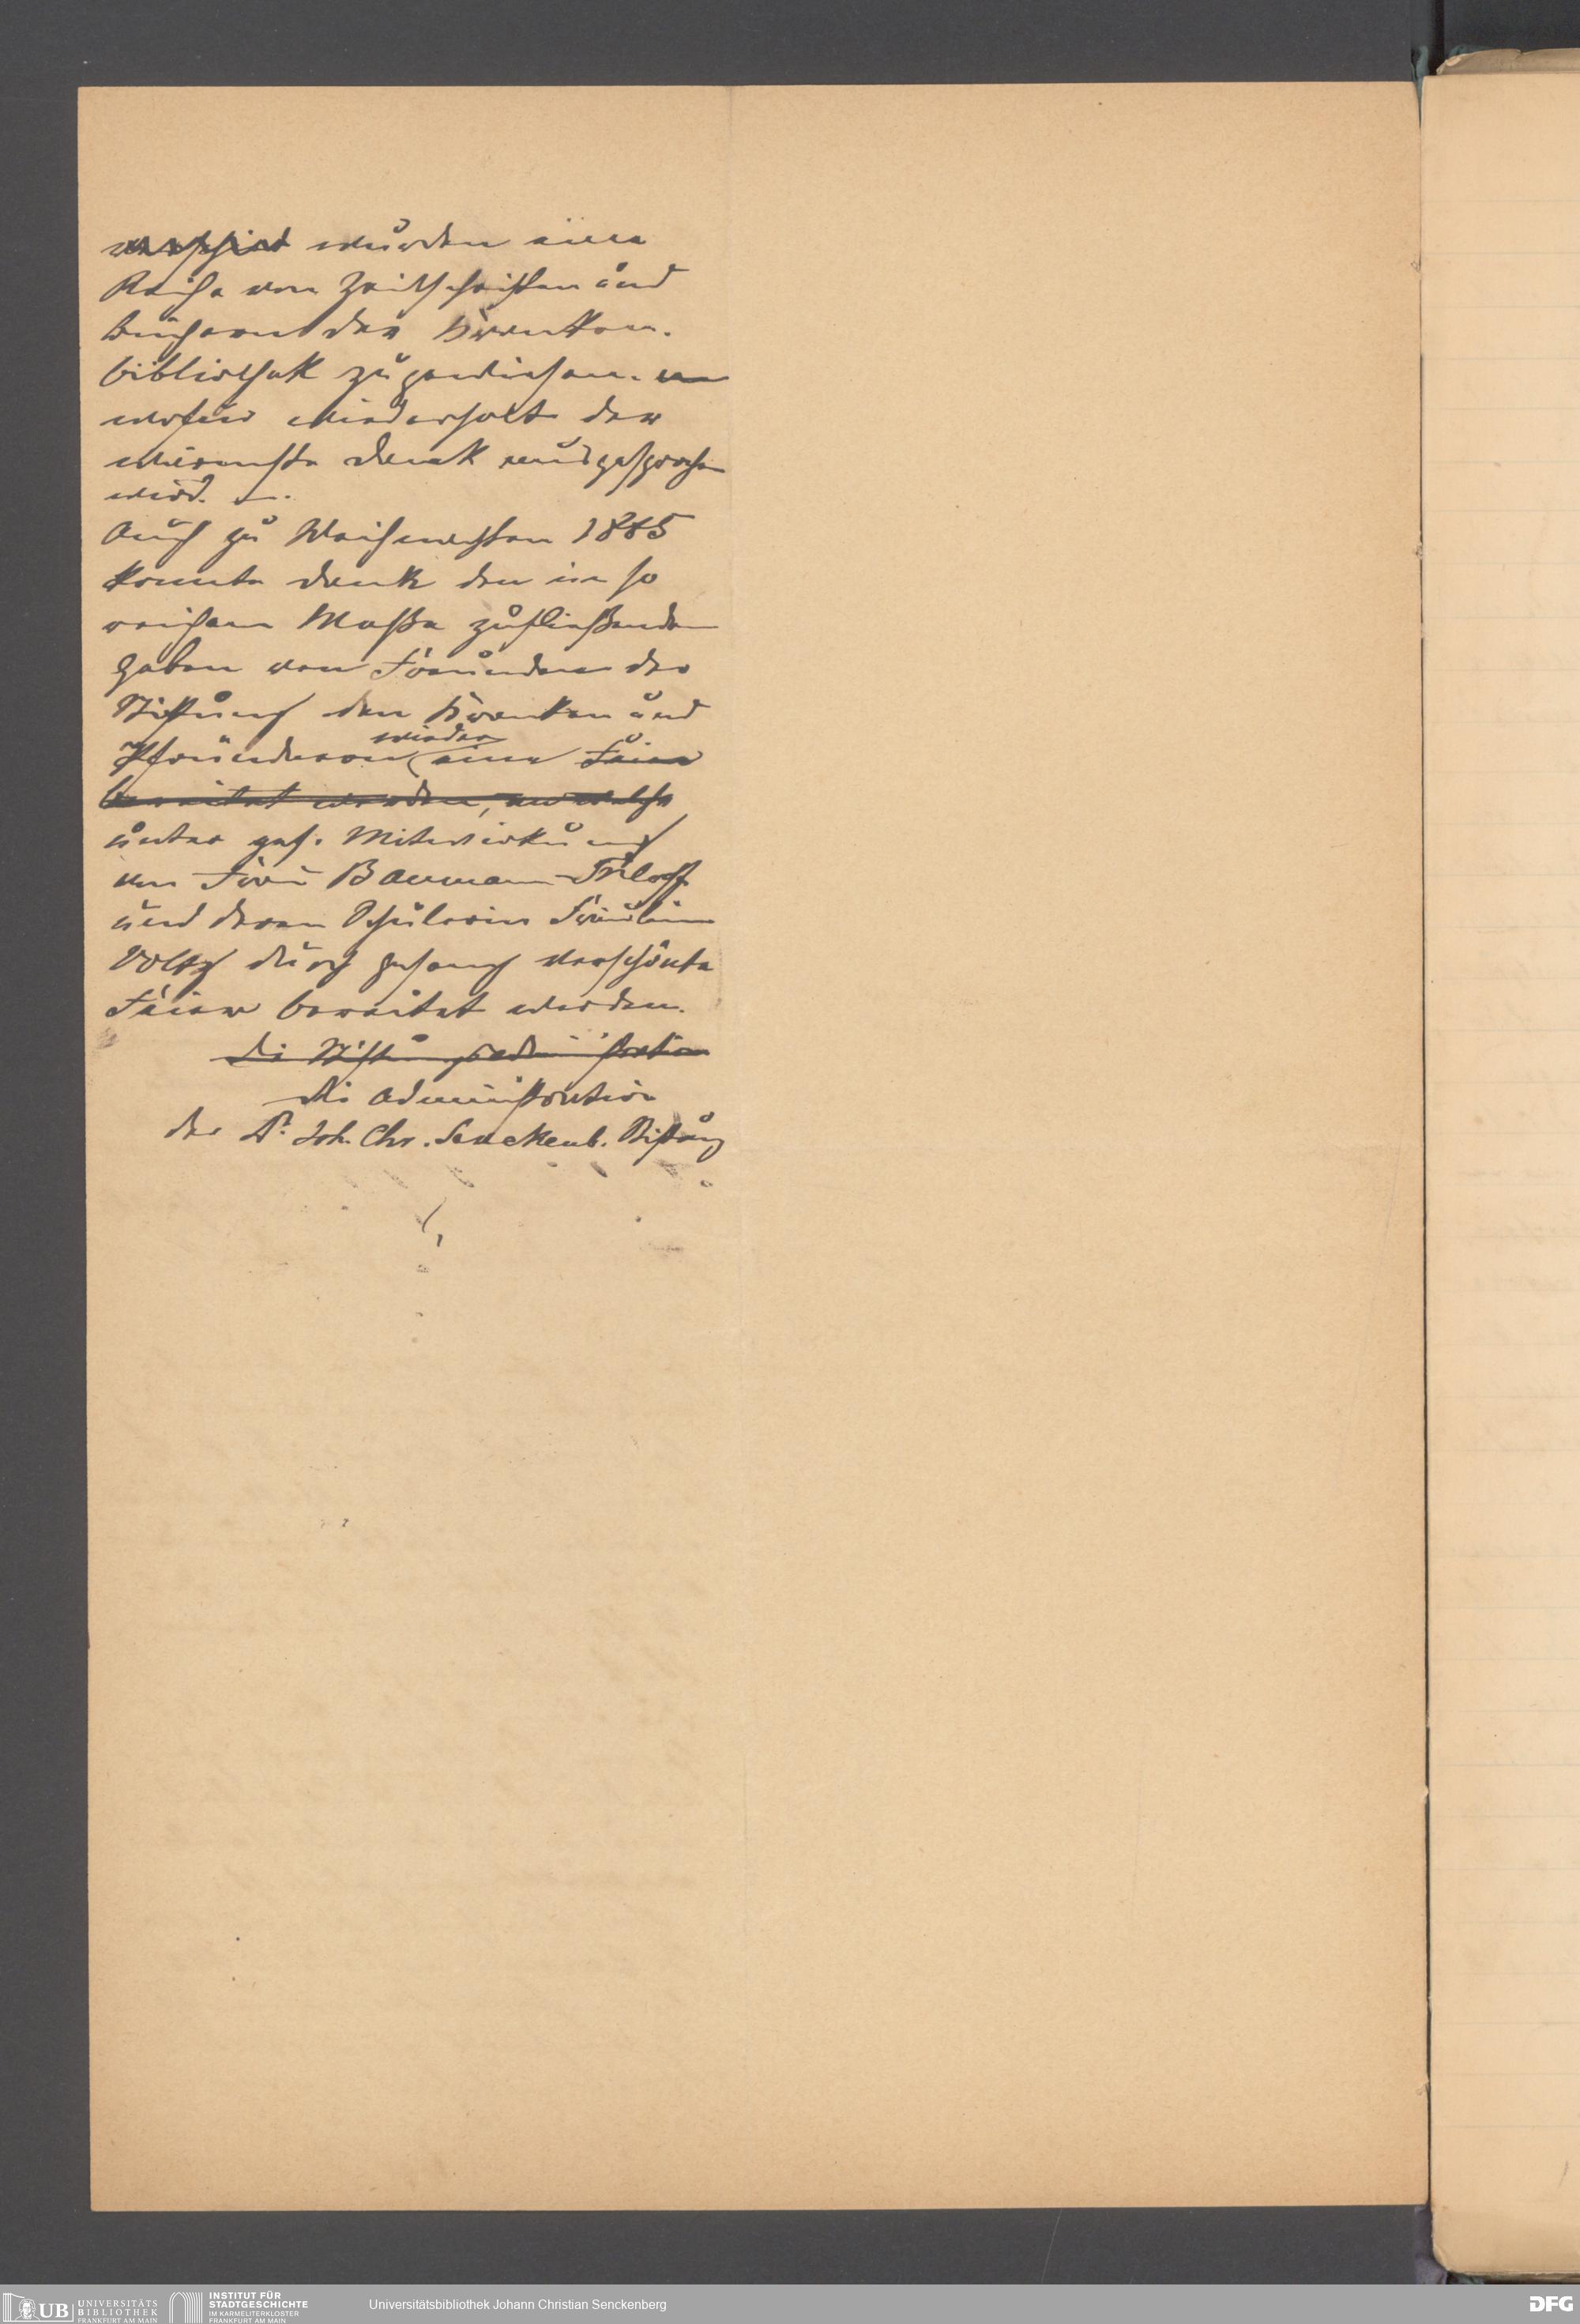 wurden eine
Reihe von Zeitschriften und
Büchern der Kranken-
bibliothek zugewiesen.
wofür wiederholt der
wärmste Dank ausgesprochen
wird. —.
Auch zu Weihnachten 1885
konnte dank den in so
reichem Maße zufließenden
Gaben von Freunden der
Stiftung den Kranken und
wieder
Pfründnern eine Feier
bereitet werden, welche
unter gef. Mitwirkung
von Frau Baumann-Triloff
und deren Schülerin Fräulein
Voltz durch Gesang verschönte
Feier bereitet werden.
Die Stiftungsadministration
Die Administration
der Dr. Joh. Chr. Senckenb. Stiftung
UB UNIVERSITÄTS
BIBLIOTHEK
FRANKFURT AM MAIN
INSTITUT FÜR
STADTGESCHICHTE
IM KARMELITERKLOSTER
FRANKFURT AM MAIN
Universitätsbibliothek Johann Christian Senckenberg
DFG